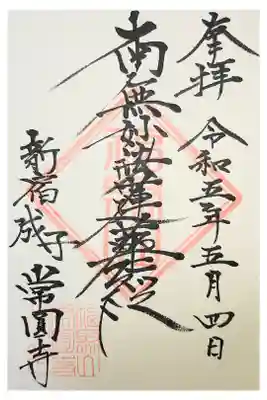 奉拝
令和五年五月四日
南無妙法蓮華経
新宿成子
常圓寺